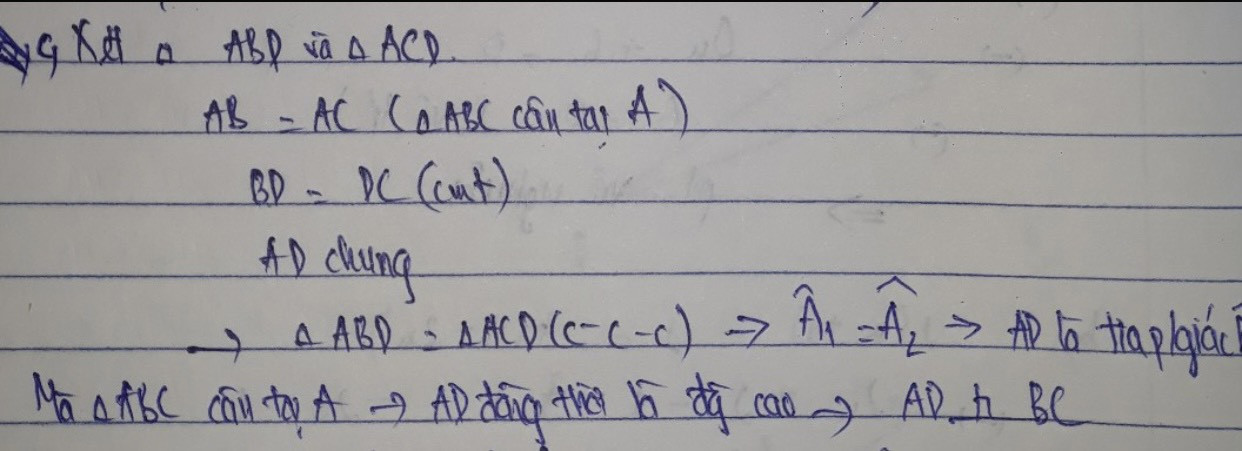 c, Xét △ ABD và △ ACD.
AB = AC (△ ABC cân tại A)
BD = DC (cmt)
AD chung
→ △ ABD = △ ACD (c-c-c) => Â₁ = Â₂ => AD là tia p/giác
Mà △ ABC cân tại A → AD đồng thời là đg cao → AD ⊥ BC